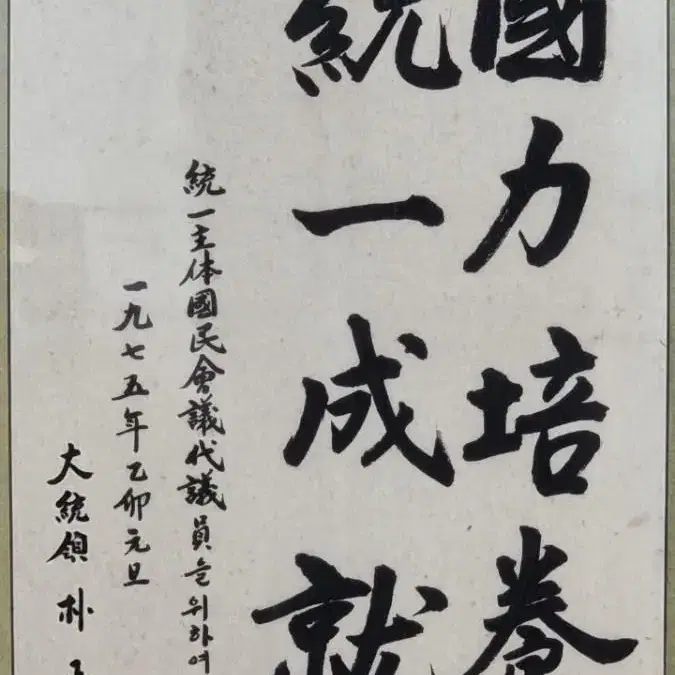 國力培養
統一成就
統一主体國民會議代議員을위하여
一九七五年乙卯元旦
大統領 朴